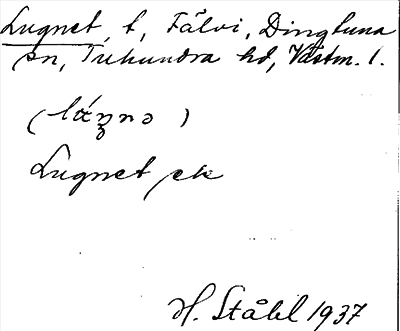 Lugnet, t, Fålvi, Dingtuna
sn, Tuhundra hd, Västm. l.
Lugnet ek
H. Ståhl 1937